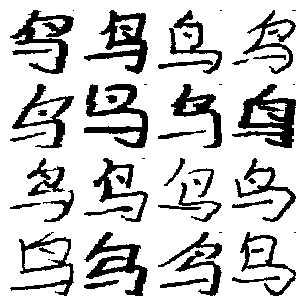 鸟鸟鸟鸟
鸟鸟鸟鸟
鸟鸟鸟鸟
鸟鸟鸟鸟